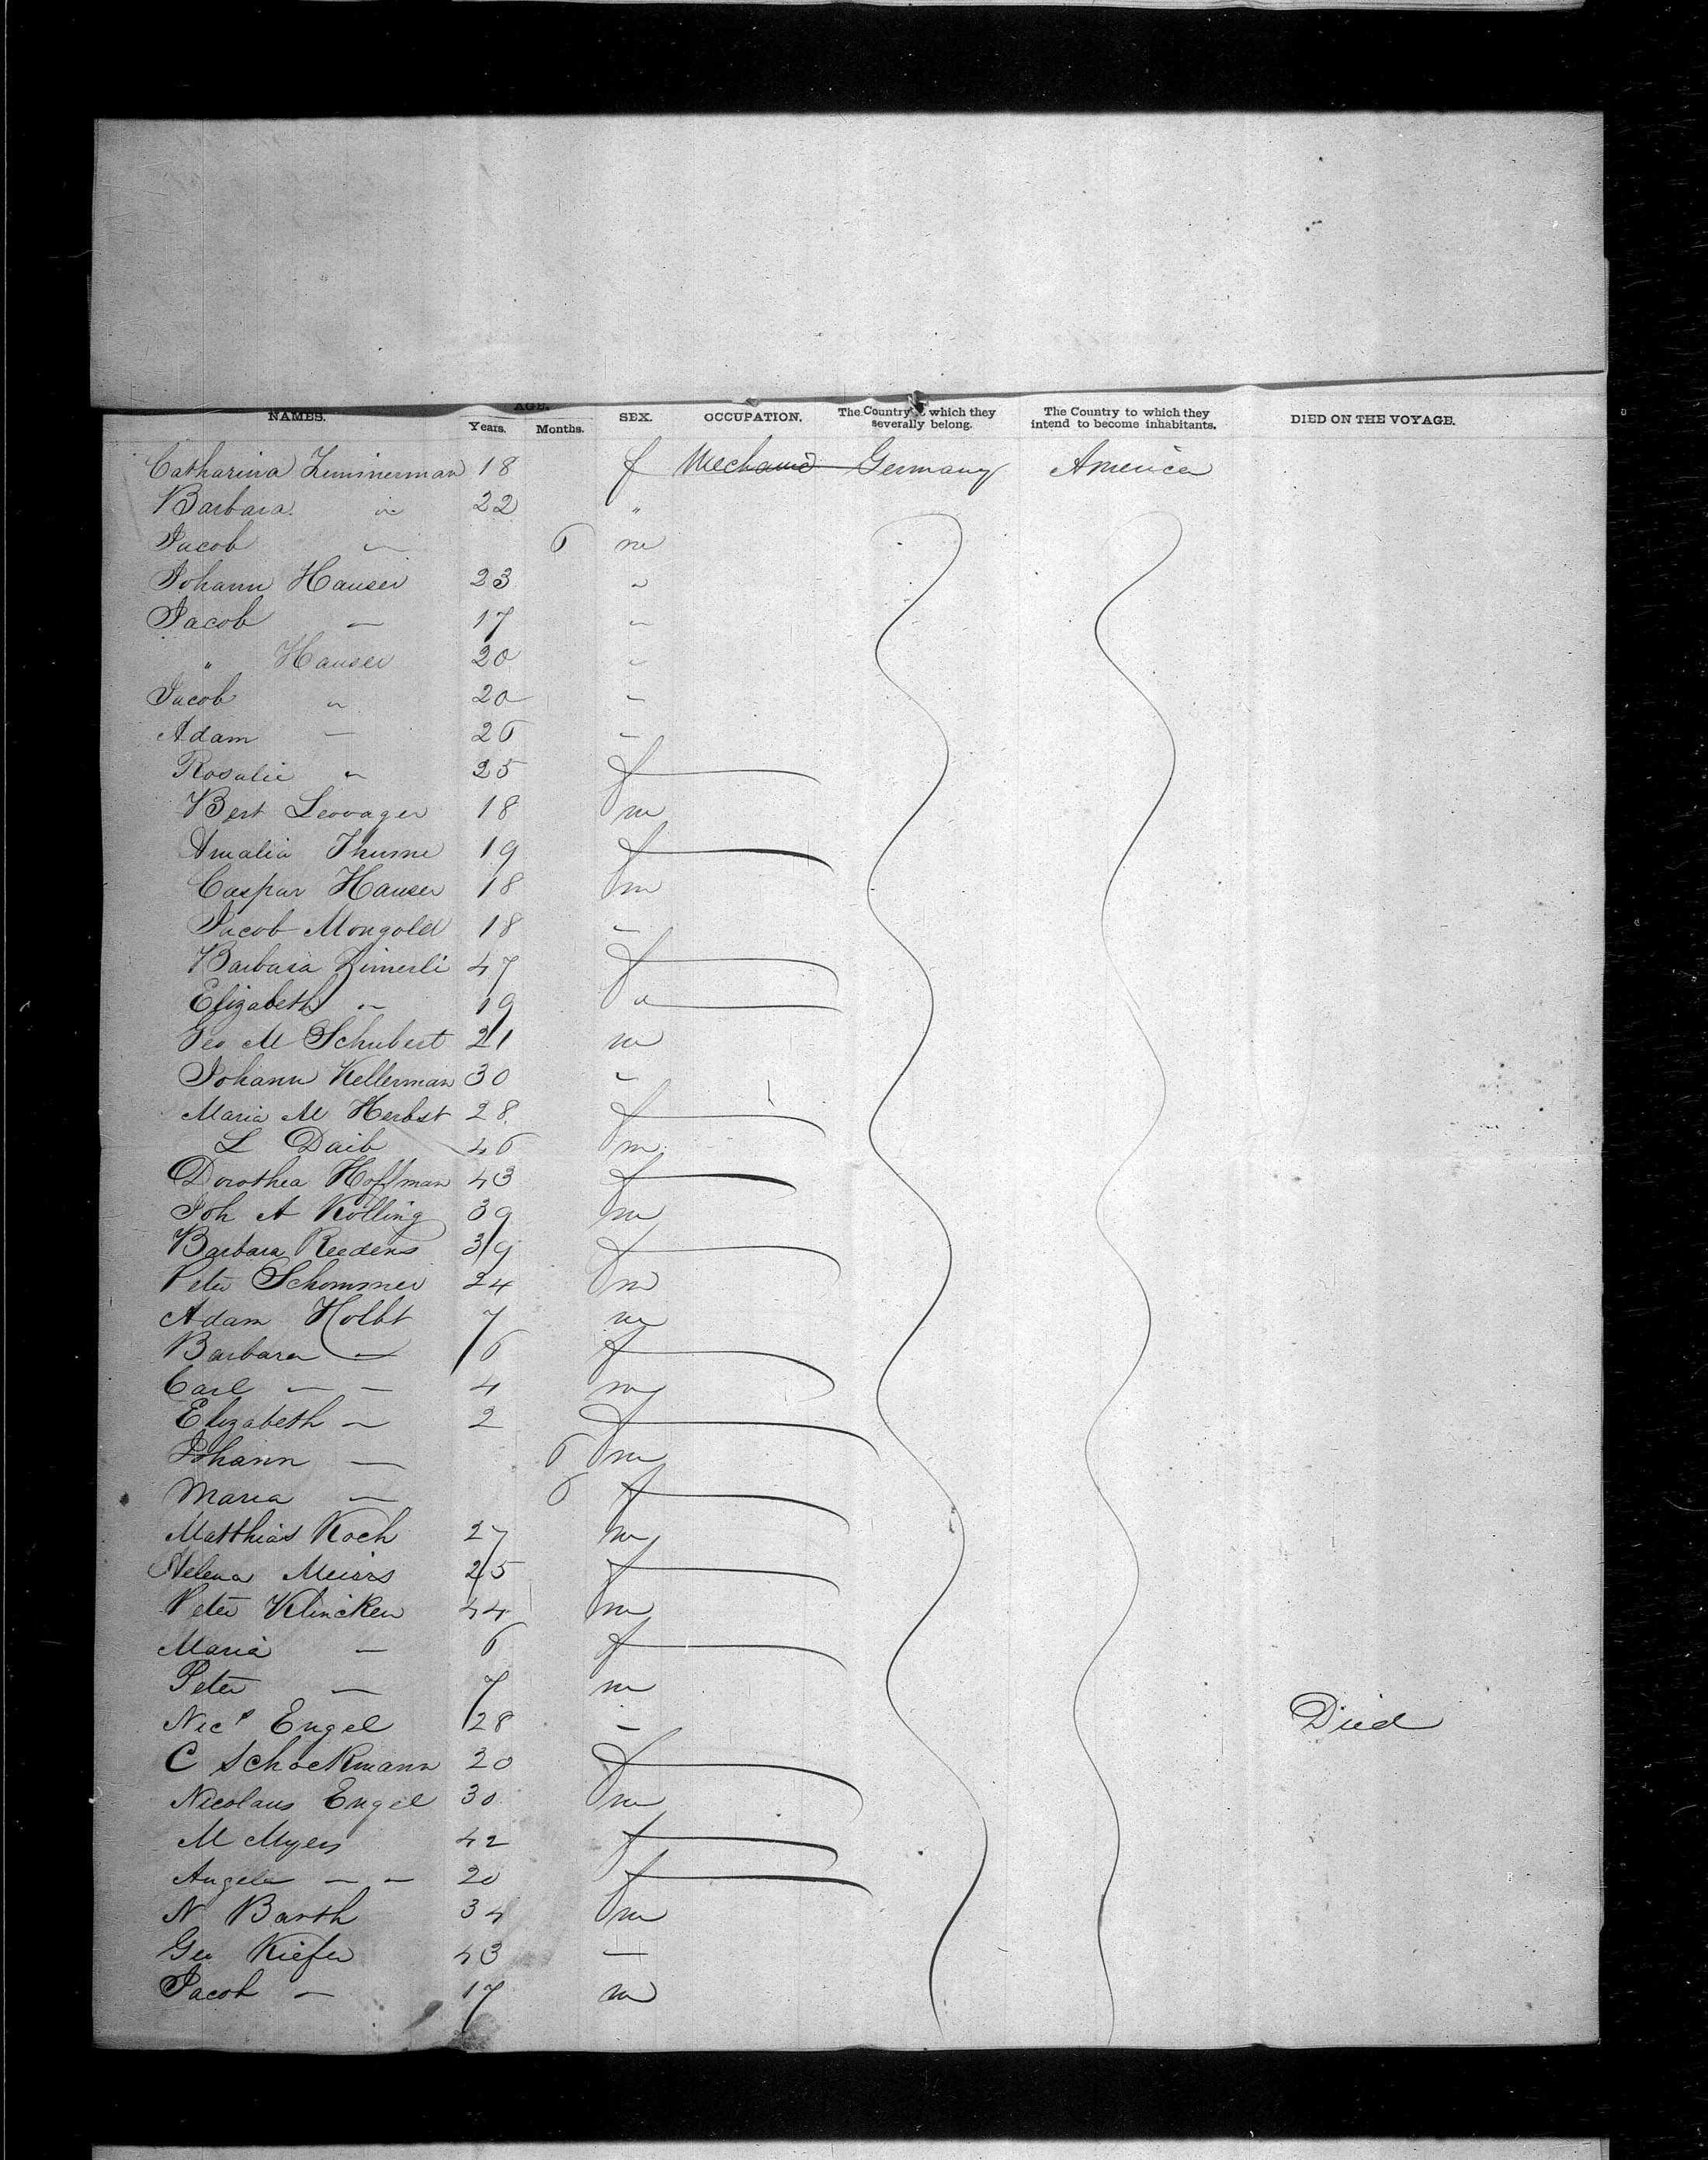 NAMES. AGE. SEX. OCCUPATION. The Country to which they severally belong. The Country to which they intend to become inhabitants. DIED ON THE VOYAGE.
Years. Months.
Catharina Zimmerman 18 f Mechanic Germany America
Barbara " 22 "
Jacob " 6 m
Johann Hauser 23 "
Jacob — 17 "
" Hauser 20 "
Jacob " 20 "
Adam — 26 "
Rosalie " 25 f
Bert 18 m
Amalia Thume 19 f
Caspar Hauser 18 m
Jacob Mongold 18 "
Barbara Zimerli 47 f
Elizabeth " 19 "
Geo M Schubert 21 m
Johann Kellerman 30 "
Maria M Herbst 28 f
L Daib 46 m
Dorothea Hoffman 43 f
Joh A Kolling 39 m
Barbara Reedens 39 f
Peter Schommer 24 m
Adam Holbt 7 m
Barbara — 6 f
Carl — — 4 m
Elizabeth — 2 f
Johann — 6 m
Maria — 6 f
Matthias Koch 27 m
Helena 25 f
Peter Klincken 44 m
Maria — 6 f
Peter — 7 m
Nics Engel 28 " Died
C Schockmann 20 f
Nicolaus Engel 30 m
M Myers 42 f
Angela — — 20 f
N Barth 34 m
Geo Kiefer 43 —
Jacob — 17 m